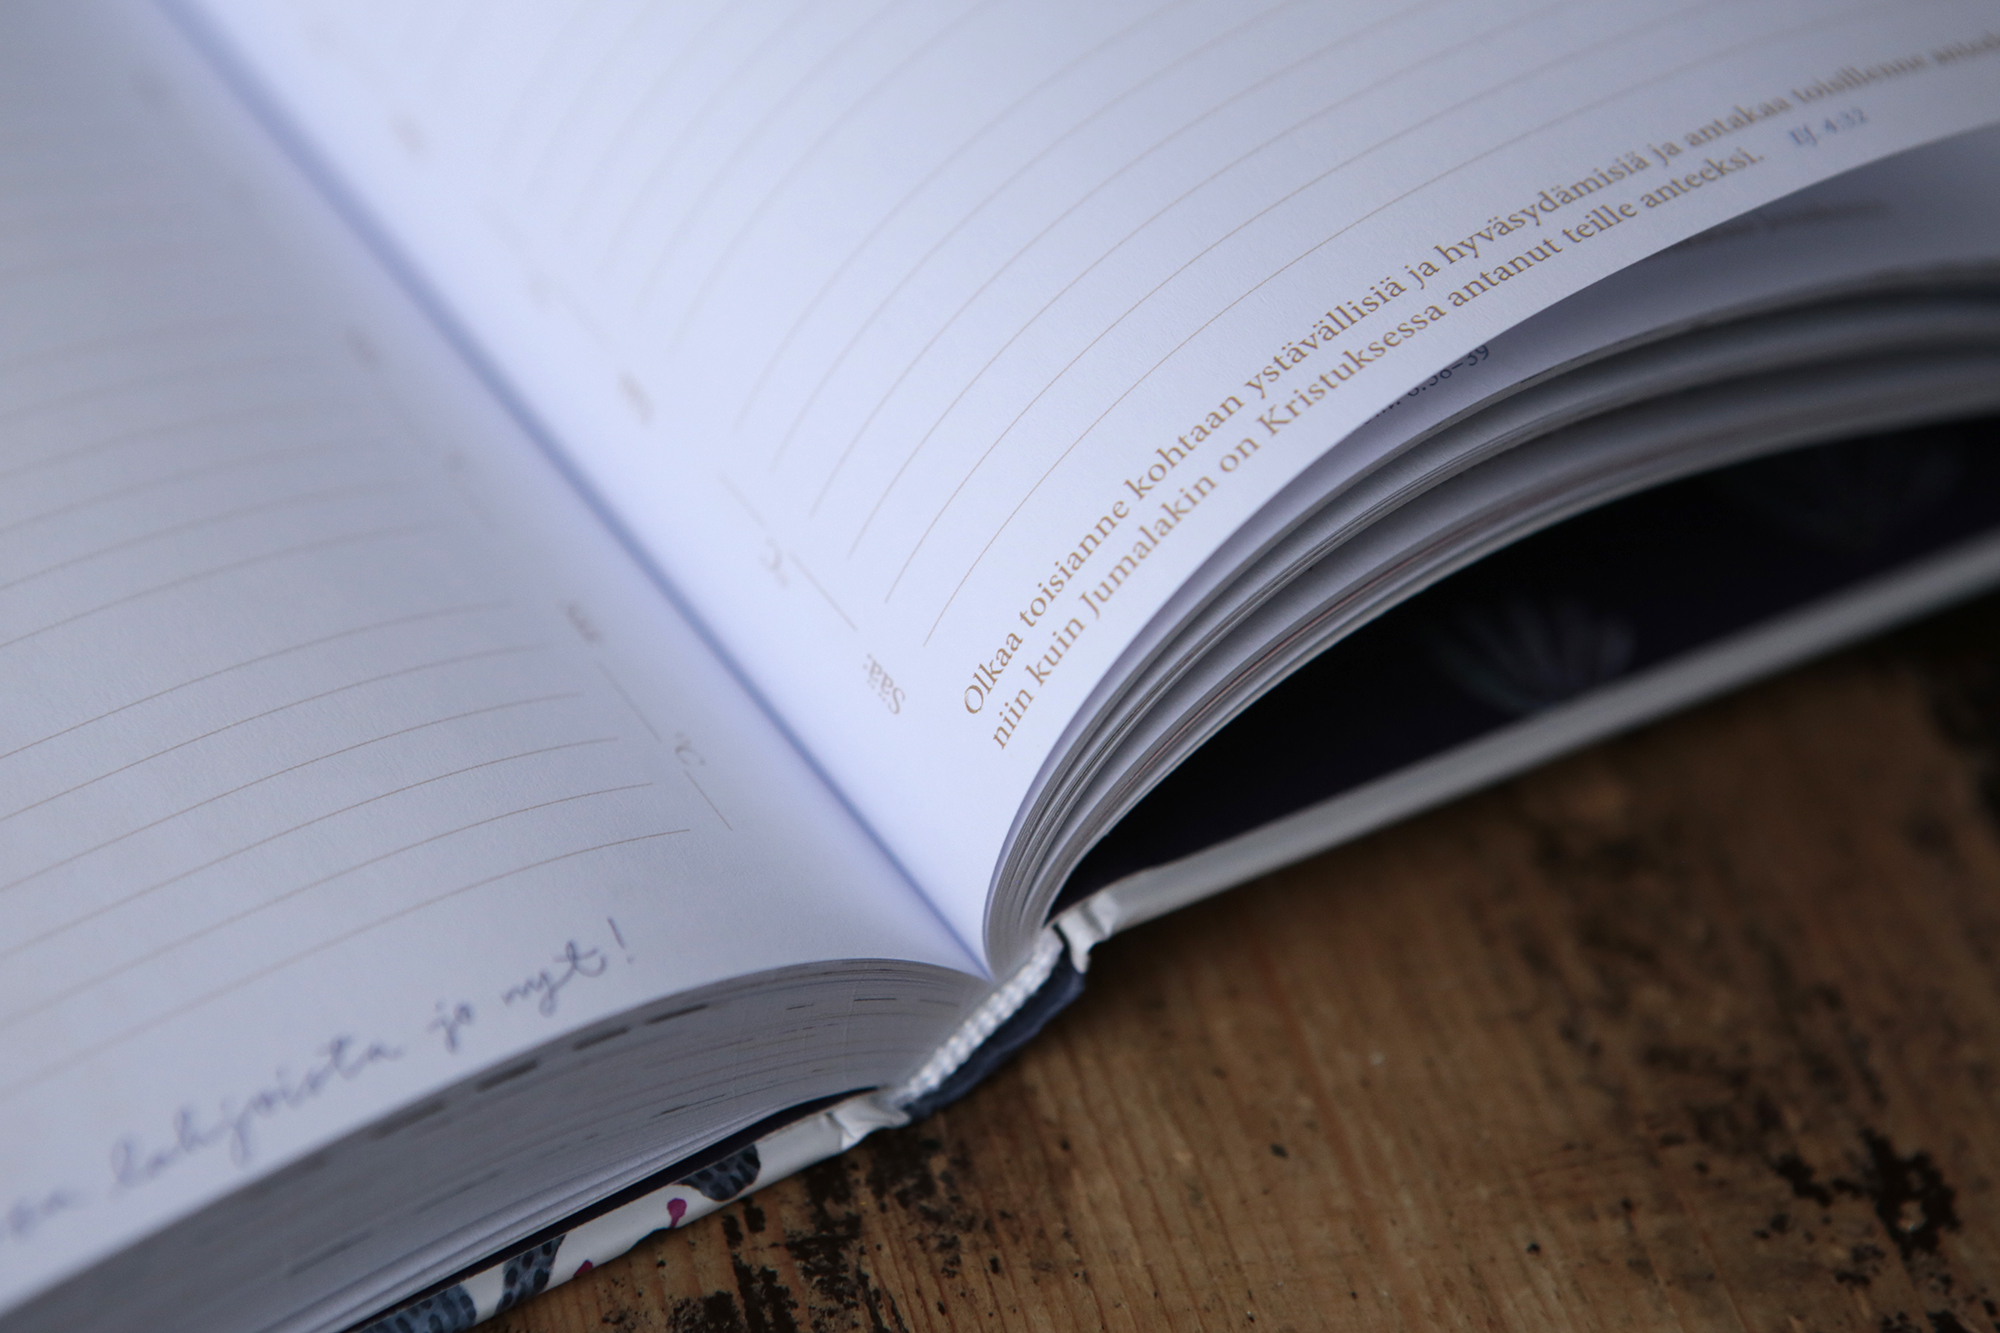 lahjoista jo nyt!
°C
Sää:
Olkaa toisianne kohtaan ystävällisiä ja hyväsydämisiä ja antakaa toisillenne
niin kuin Jumalakin on Kristuksessa antanut teille anteeksi. Ef. 4:32
8:38–39